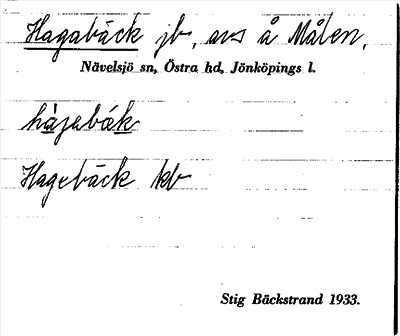 Hagabäck jb, avs å Målen,
Nävelsjö sn, Östra hd, Jönköpings l.
hàgabák
Hagebäck kb
Stig Bäckstrand 1933.